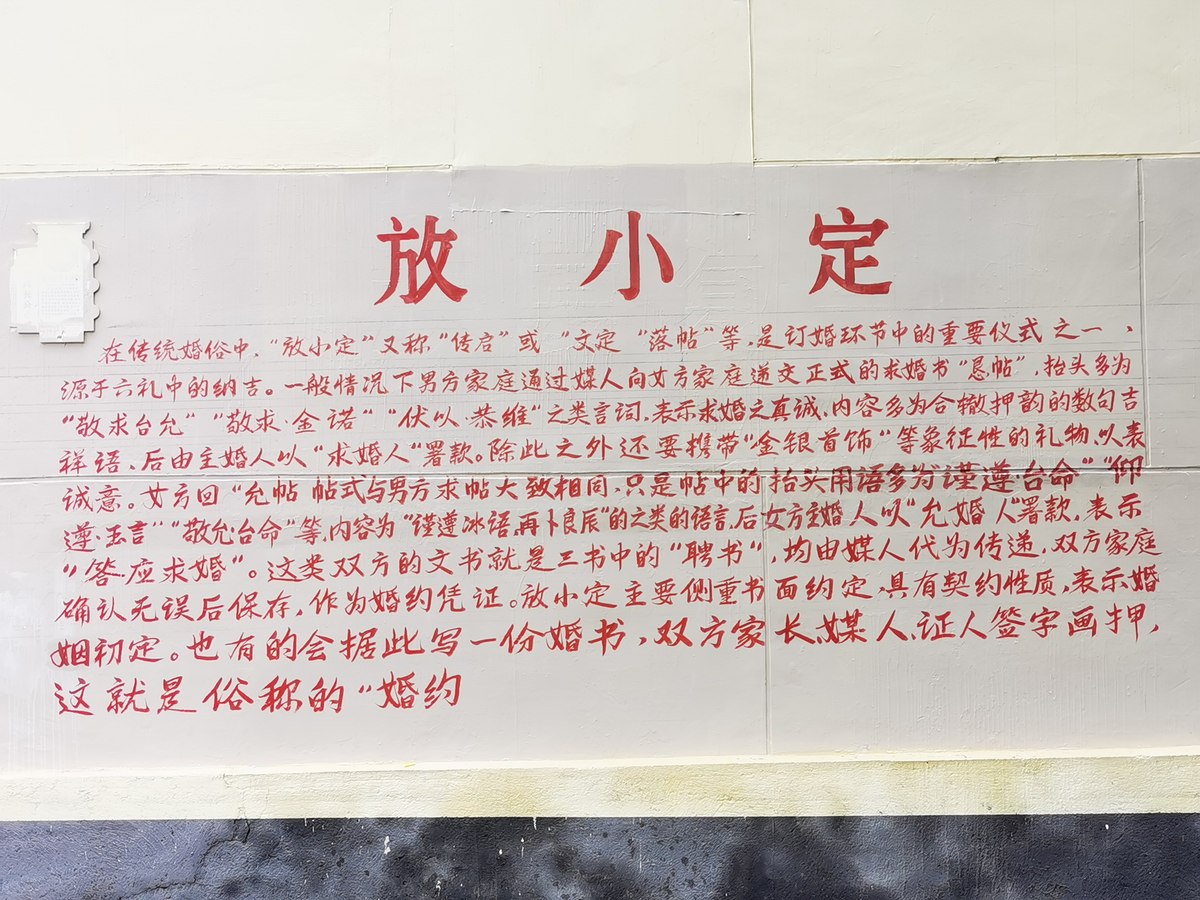 放小定
在传统婚俗中，“放小定”又称“传启”或“文定“落帖”等，是订婚环节中的重要仪式之一、
源于六礼中的纳吉。一般情况下男方家庭通过媒人向女方家庭递交正式的求婚书“恳帖”，抬头多为
“敬求台允”“敬求·金诺”“伏以·恭维”之类言词，表示求婚之真诚、内容多为合辙押韵的数句吉
祥语、后由主婚人以“求婚人”署款。除此之外还要携带“金银首饰”等象征性的礼物，以表
诚意。女方回“允帖帖式与男方求帖大致相同，只是帖中的抬头用语多为谨遵·台命”“仰
遵·玉言”“敬允·台命”等，内容为“谨遵冰语，再卜良辰”的之类的语言，后女方主婚人以“允婚人”署款，表示
“答·应求婚”。这类双方的文书就是三书中的“聘书”，均由媒人代为传递，双方家庭
确认无误后保存，作为婚约凭证。放小定主要侧重书面约定，具有契约性质，表示婚
姻初定。也有的会据此写一份婚书，双方家长、媒人、证人签字画押，
这就是俗称的“婚约